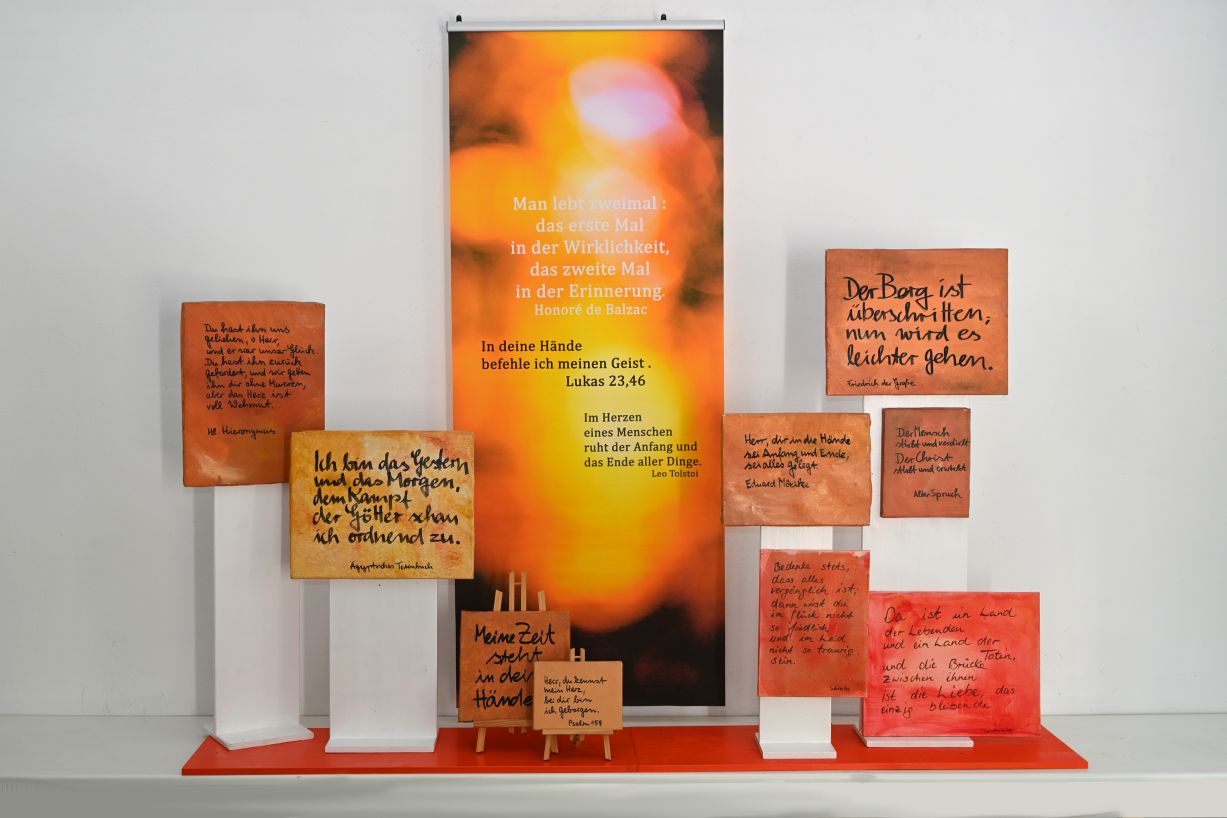 Man lebt zweimal :
das erste Mal
in der Wirklichkeit,
das zweite Mal
in der Erinnerung.
Honoré de Balzac
In deine Hände
befehle ich meinen Geist .
Lukas 23,46
Im Herzen
eines Menschen
ruht der Anfang und
das Ende aller Dinge.
Leo Tolstoi
Du hast ihn uns
geliehen, o Herr,
und er war unser Glück.
Du hast ihn zurück
gefordert, und wir geben
ihn dir ohne Murren,
aber das Herz ist
voll Wehmut.
Hl. Hieronymus
Ich bin das Gestern
und das Morgen,
dem Kampf
der Götter schau
ich ordnend zu.
Ägyptisches Totenbuch
Meine Zeit
steht
in dei
Hände
Herr, du kennst
mein Herz,
bei dir bin
ich geborgen.
Psalm 139
Der Berg ist
überschritten,
nun wird es
leichter gehen.
Friedrich der Große
Herr, dir in die Hände
sei Anfang und Ende,
sei alles gelegt
Eduard Mörike
Der Mensch
stirbt und verdirbt
Der Christ
stirbt und erwirbt
Alter Spruch
Bedenke stets,
dass alles
vergänglich ist;
dann wirst du
im Glück nicht
so fröhlich
und im Leid
nicht so traurig
sein.
Da ist ein Land
der Lebenden
und ein Land der
Toten,
und die Brücke
zwischen ihnen
ist die Liebe, das
einzig bleibende